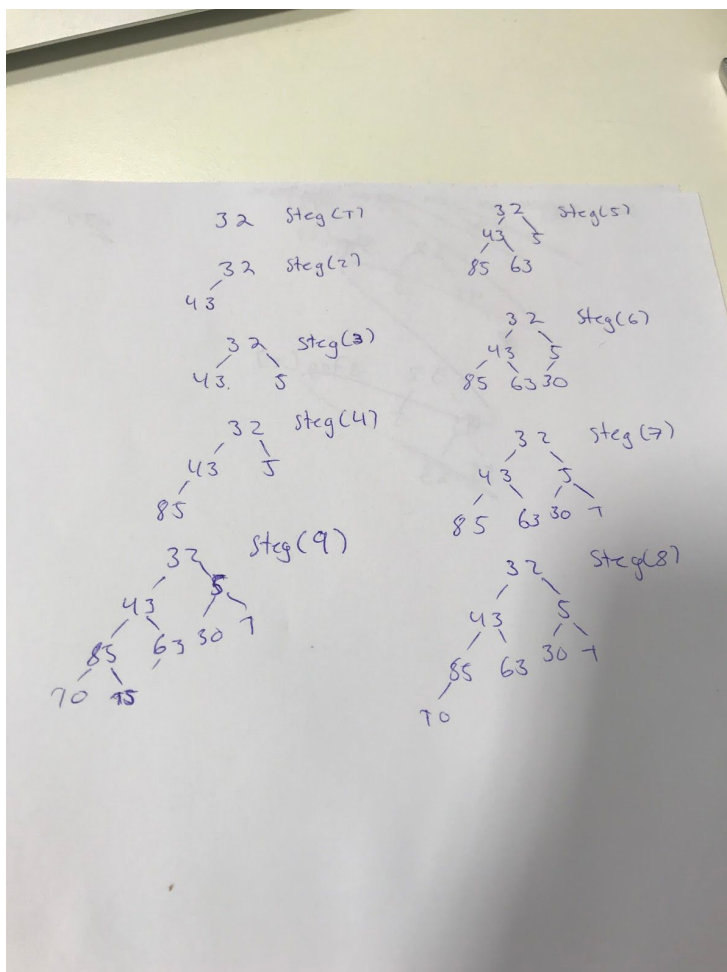 32 Steg(1)
32 Steg(2)
43
32 Steg(3)
43. 5
32 Steg(4)
43 5
85
32 Steg(5)
43 5
85 63
32 Steg(6)
43 5
85 63 30
32 Steg(7)
43 5
85 63 30 1
32 Steg(8)
43 5
85 63 30 1
10
32 Steg(9)
43 5
85 63 30 1
10